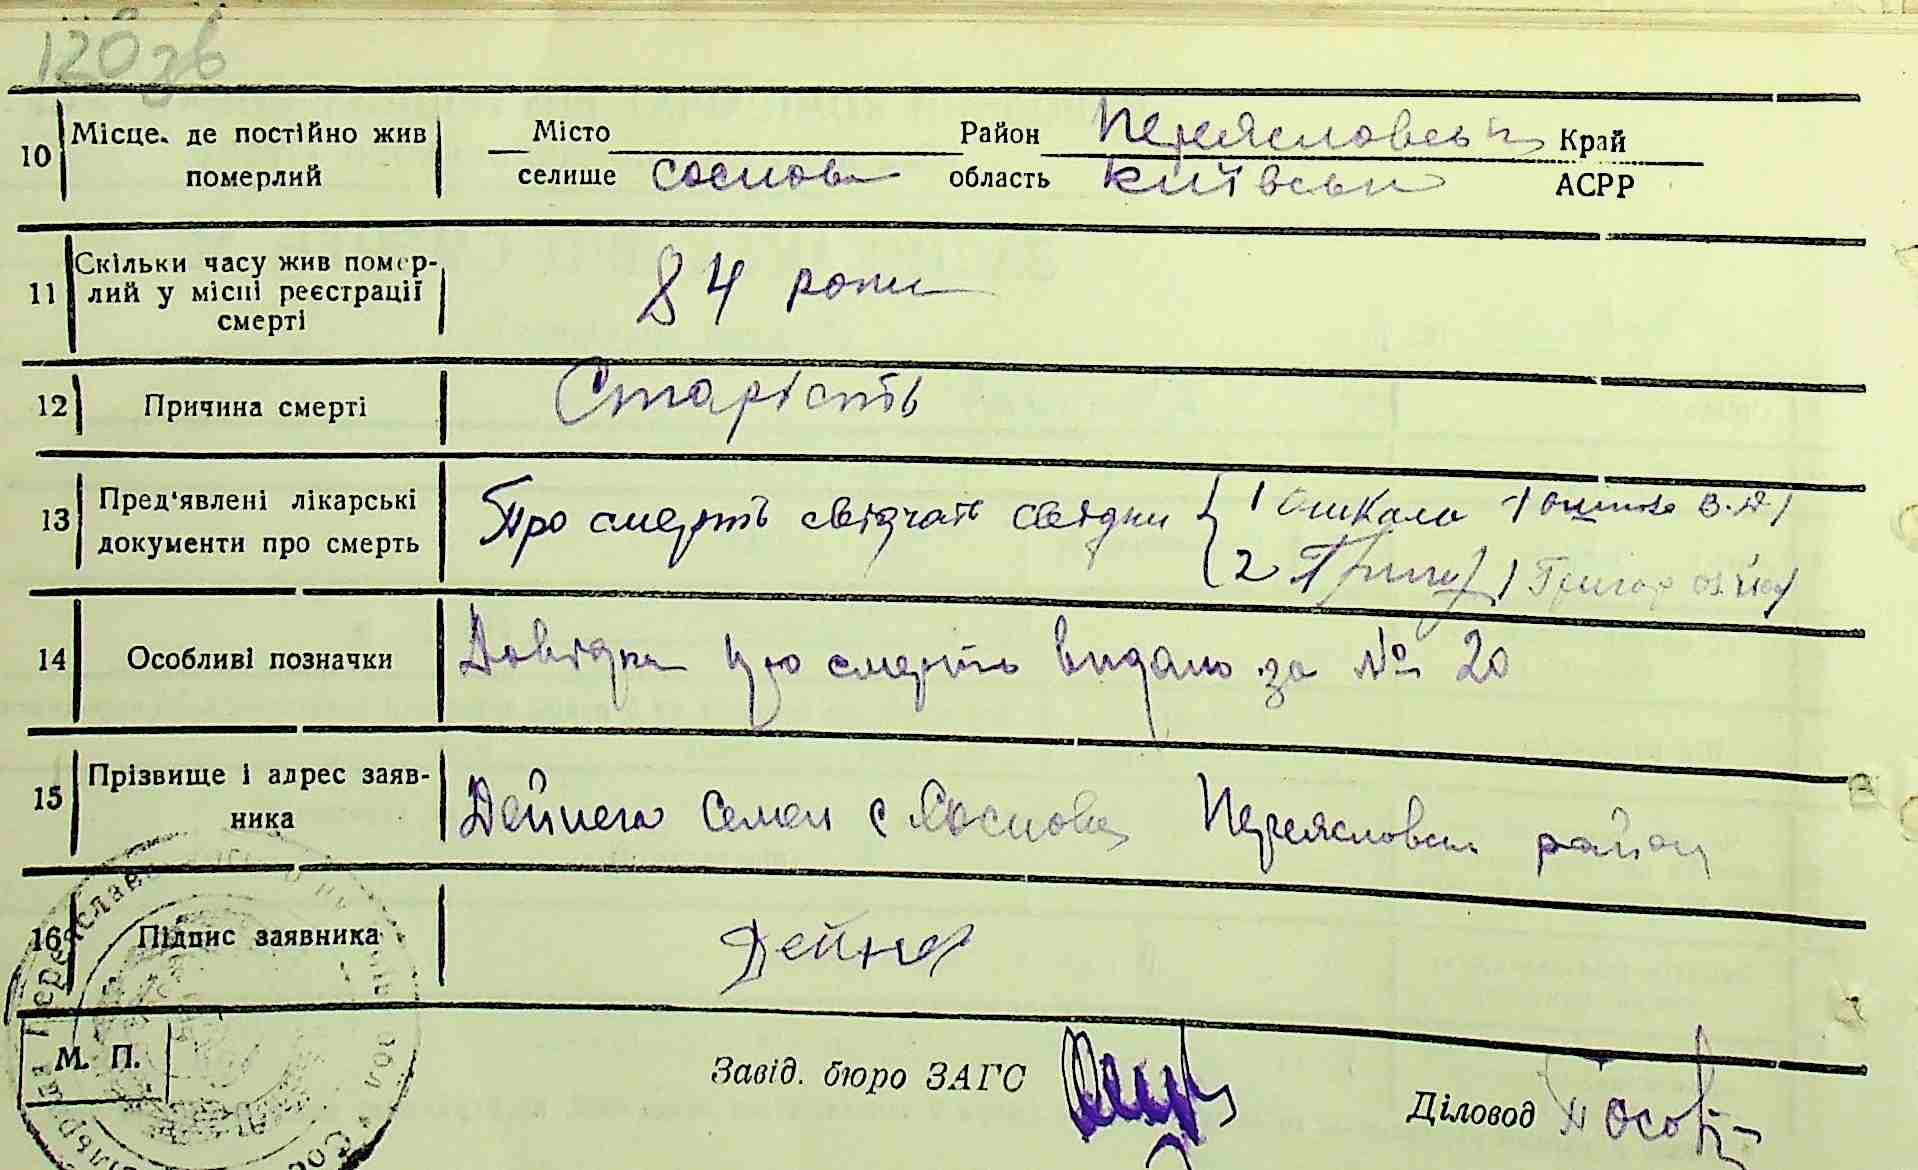 120зв
10 Місце, де постійно жив померлий
Місто Район Переясловськ Край
селище соснова область Київськ АСРР
11 Скільки часу жив помер-
лий у місці реєстрації
смерті
84 роки
12 Причина смерті Старість
13 Пред'явлені лікарські
документи про смерть
Про смерть свідчать свідки 1 В.
2
14 Особливі позначки Довідка про смерть видано за № 20
15 Прізвище і адрес заяв-
ника
Дейнега Семен с Соснова Переясловськ район
16 Підпис заявника Дейнег
М. П.
Завід. бюро ЗАГС
Діловод